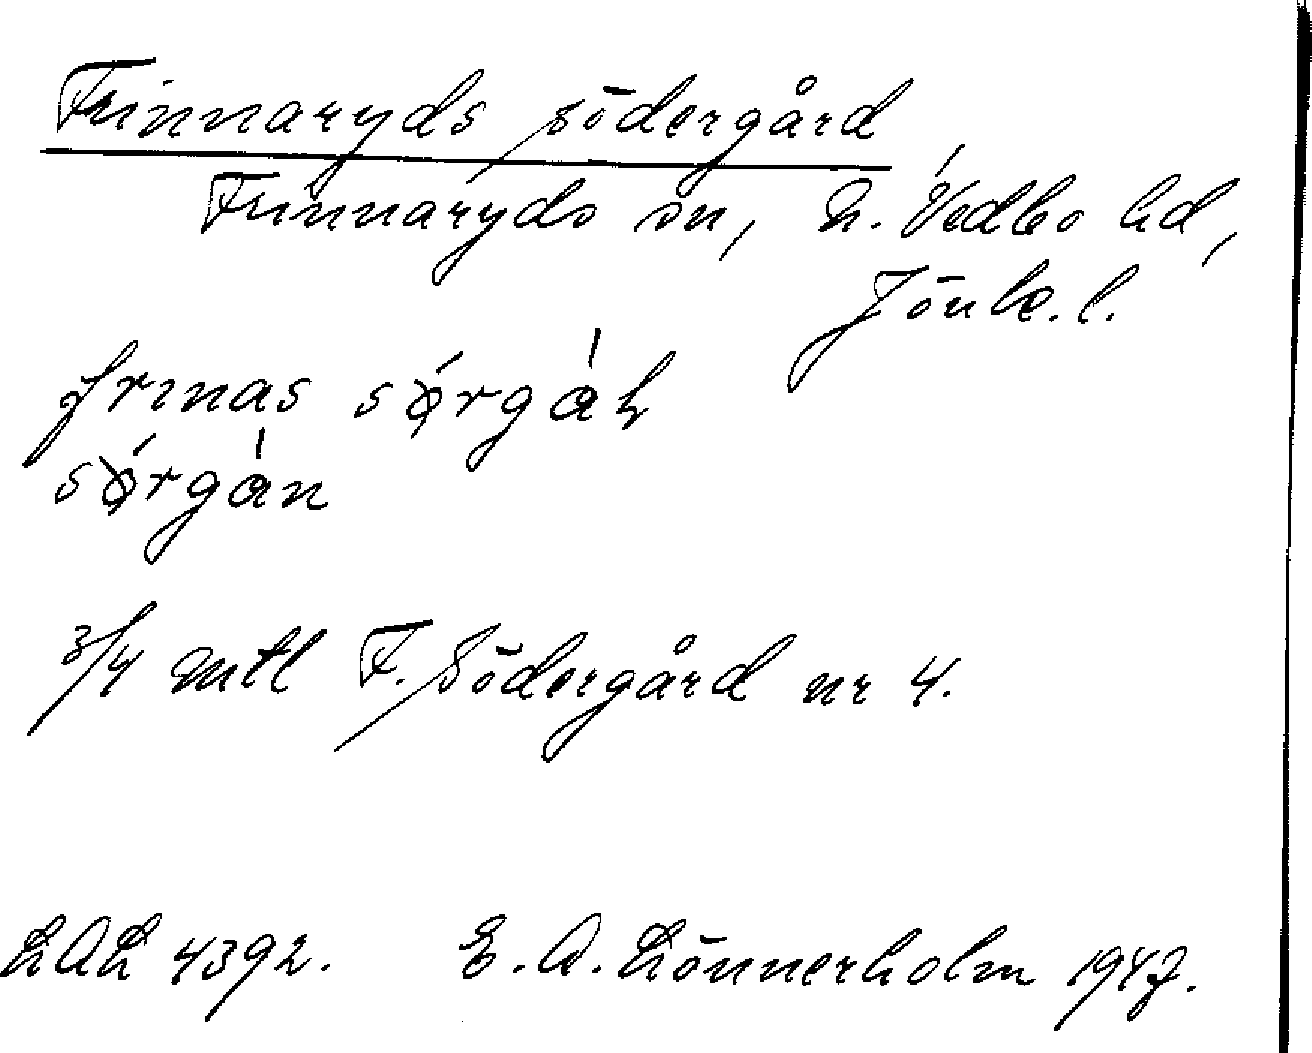 Frinnaryds södergård
Frinnaryds sn, N. Vedbo hd,
Jönk. l.
sǿrgán
3/4 mtl F. Södergård nr 4.
LAL 4392. E. A. Lönnerholm 1947.